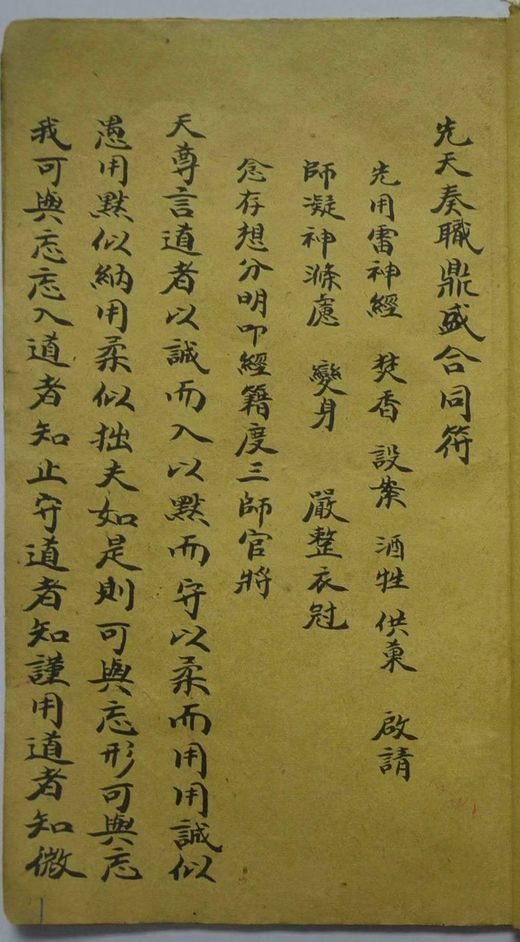 先天奏職鼎盛合同符
先用雷神經 焚香 設案 酒牲 供菓 啟請
師凝神滌慮 變身 嚴整衣冠
念存想分明叩經籍度三師官將
天尊言道者以誠而入以默而守以柔而用用誠似
愚用默似納用柔似拙夫如是則可與忘形可與忘
我可與忘忘入道者知止守道者知謹用道者知微